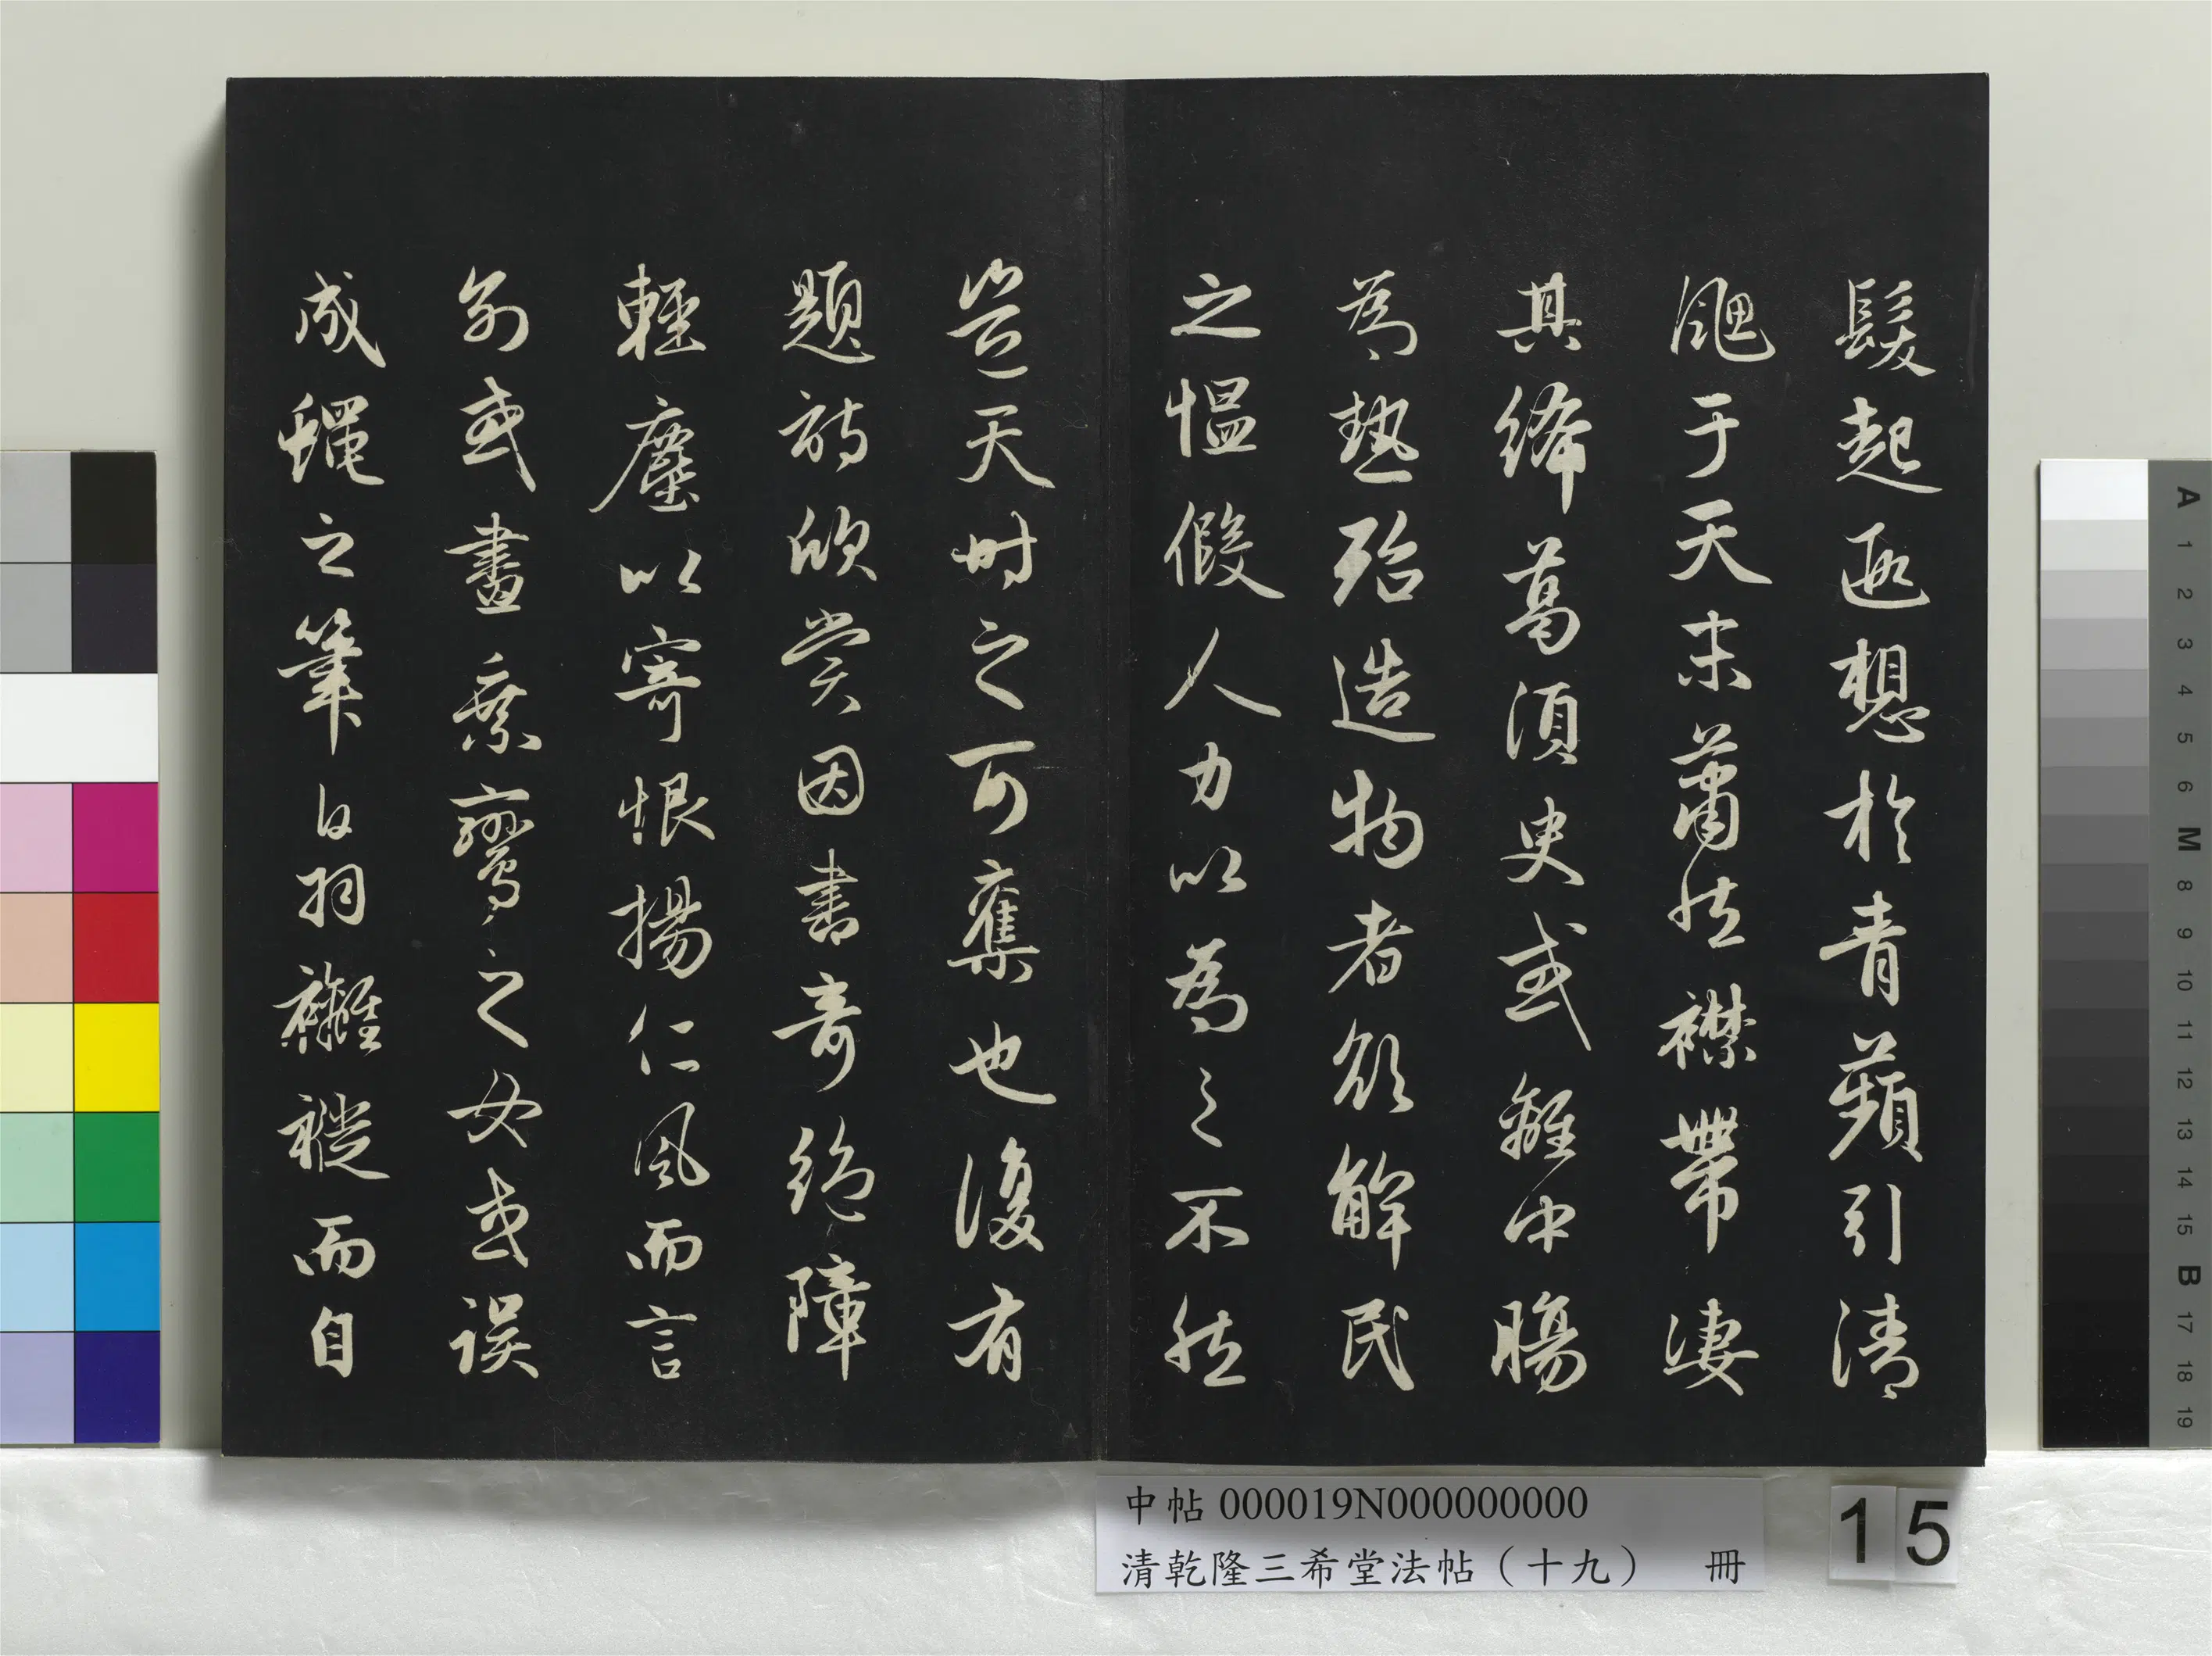 髮起遐想於青蘋引清
颸于天末蕭然襟帶淒
其絺葛須臾或離中腸
為熱殆造物者欲解民
之慍假人力以為之不然
豈天時之可奪也復有
題詩欣賞因書奇絕障
輕塵以寄恨揚仁風而言
別或畫乘鸞之女或誤
成蠅之筆白羽襳褷而自
中帖 000019N000000000
清乾隆三希堂法帖（十九） 冊
15
A 1 2 3 4 5 6 M 8 9 10 11 12 13 14 15 B 17 18 19